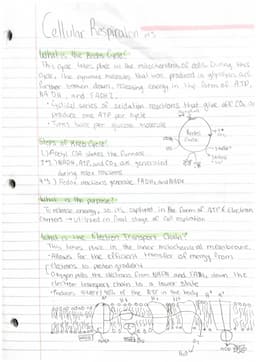 Cellular Respiration
What is the Krebs Cycle?
This cycle takes place in the mitochondria of cells. During this
cycle, the pyruvate molecules that was produced in glycolysis are
further broken down, releasing energy in the form of ATP,
NADH, and FADH2.
• Cyclical series of oxidation reactions that give off CO2 and
produce one ATP per cycle
• Turns twice per glucose molecule
Krebs
Cycle
Steps of Krebs Cycle!
1.) Acetyl CoA starts the
NADH, ATP, and CO2 are generated
during redox reactions
Redox reactions generate FADH2 and NADH
What is the purpose?
To release energy, so its captured in the form of ATP & electron
utilized in final stage of cell respiration
What is the Electron Transport Chain?
This takes place in the inner mitochondrial membrane.
• Allows for the efficient transfer of energy from
electrons to proton gradient
• Oxygen pulls the electrons from NADH and FADH2 down the
electron transport chain to a lower state
• Produces over 90% of the ATP in the body
H+ H+ H+
H2O